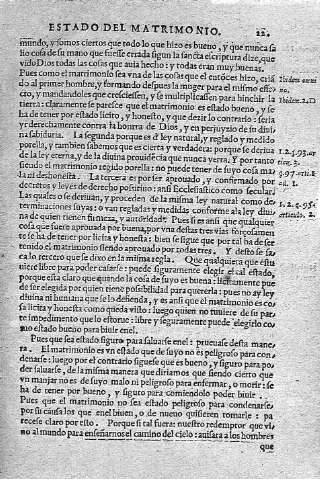 ESTADO DEL MATRIMONIO. 22.
mundo, y somos ciertos que todo lo que hizo es bueno, y que nunca sa
lio cosa de su mano que fuesse errada segun la sancta escriptura dize, que
vido Dios todas las cosas que auia hecho: y todas eran muy buenas.
Pues como el matrimonio sea vna de las cosas que el entõces hizo, criã
do al primer hombre, y formando despues la muger para el mismo effe
cto, y mandandoles que cresciessen, y se multiplicassen para hinchir la
tierra: claramente se paresce que el matrimonio es estado bueno, y se
ha de tener por estado licito, y honesto, y que dezir lo contrario: seria
yr derechamente contra la honrra de Dios, y en perjuyzio de su diui
na sabiduria. La segunda porque es d̃ ley natural, y reglado y medido
porella, y tambien sabemos que es cierta y verdadera: porque se deriua
de la ley eterna, y de la diuina prouidẽcia que nunca yerra. Y por tanto
siendo el matrimonio reglado porella: no puede tener de suyo cosa ma
la ni deshonesta. La tercera es por ser aprouado, y confirmado por
decretos y leyes de derecho positiuo: ansi Ecclesiastico como secular.
Las quales o se deriuan, y proceden de la misma ley natural como de
terminaciones suyas: o van regladas y medidas conforme ala ley diui
na de quien tienen firmeza, y autoridad. Pues si es ansi que qualquier
cosa que fuere aprouada por buena, por vna destas tres vias forçosamen
te se ha de tener por licita y honesta: bien se sigue que por tal ha de ser
tenido el matrimonio siendo aprouado por todas tres. Y desto se sa
ca lo tercero que se dixo en la misma regla. Que qualquiera que estu
uiere libre para poder casarse: puede siguramente elegir el tal estado,
porque esta claro que quando la cosa de suyo es buena: licitamente pue
de ser elegida por quien tiene possibilidad para quererla: pues no ay ley
diuina ni humana que se lo defienda, y es ansi que el matrimonio es co
sa licita y honesta como queda visto: luego quien no tuuiere de su par
te impedimento que lo estorue: libre y seguramente puede elegirlo co
mo estado bueno para biuir enel.
Pues que sea estado siguro para saluarse enel: prueuase desta mane
ra. El matrimonio es vn estado que de suyo no es peligroso para con
denarse: luego por el contrario siguese que es bueno, y siguro para po
der saluarse, de la misma manera que diriamos que siendo cierto que
vn manjar no es de suyo malo ni peligroso para enfermar, o morir: se
ha de tener por bueno, y siguro para comiendolo poder biuir.
Pues que el matrimonio no sea estado peligroso para condenarse,
por su causa los que enel biuen, o de nueuo quisieren tomarle: pa
resce claro por esto. Porque si tal fuera: nuestro redemptor que vi
no al mundo para enseñarnos el camino del cielo: auisara a los hombres
que